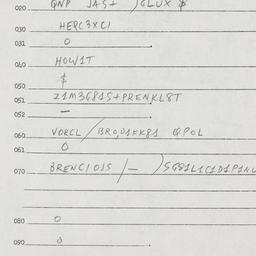 020. QNP JAS+ )GLUX $
030 HEPC3XCI
031 0
040 HOW1T
050 $
051 Z1M3G815+PRENKL8T
052 —
060 VORCL/BRO,01FK81 QPOL
061 0
070 BRENCIOJS /— )5G81L1C1D1P1NU
080 0
090 0